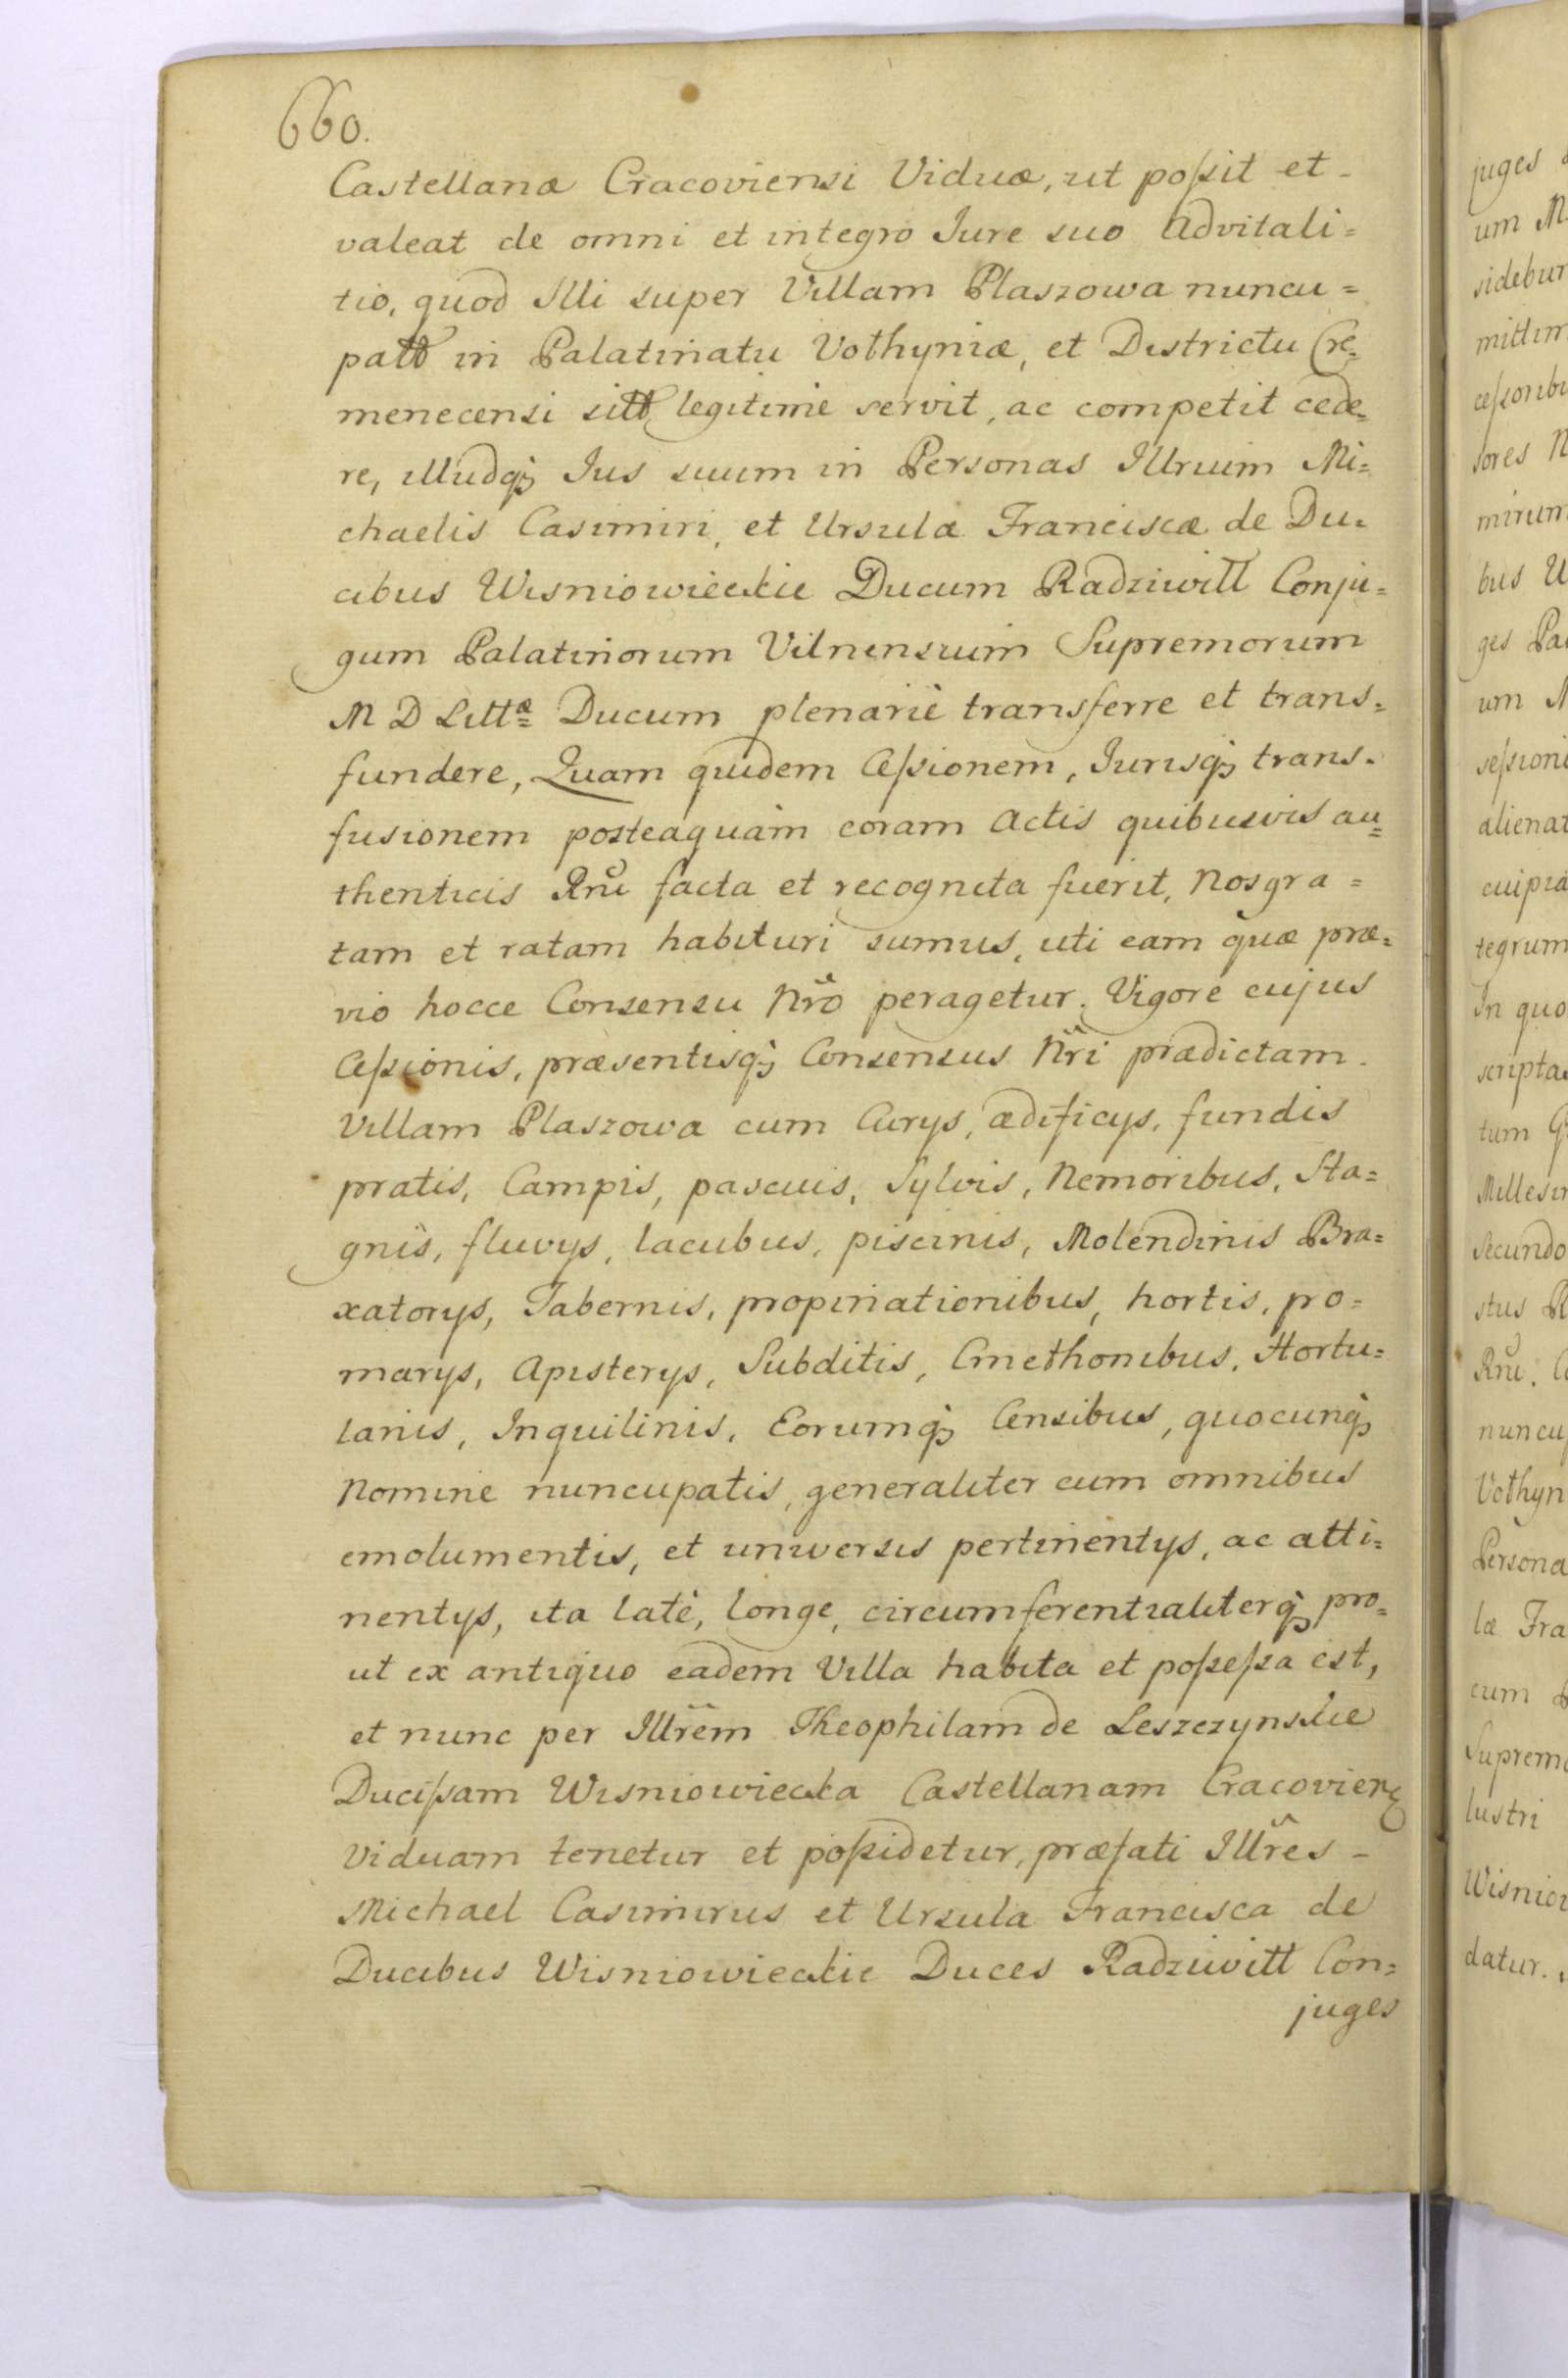 660.
Castellanæ Cracoviensi Viduæ, ut poſsit et -
valeat de omni et integro Jure suo Advitali=
tio, quod Illi super Villam Plaszowa nuncu=
patt in Palatinatu Vołhyniæ, et Districtu Cre=
menecensi sitt legitime servit, ac competit cede=
re, illudq; Jus suum in Personas Illrium Mi=
chaelis Casimiri, et Ursulæ Franciscæ de Du=
cibus Wisniowieckie Ducum Radziwiłł Conju=
gum Palatinorum Vilnensium Supremorum
M D Littæ Ducum plenariè transferre et trans=
fundere, Quam quidem Ceſsionem, Jurisq; trans=
fusionem posteaquàm coram Actis quibusvis au=
thenticis Rnĩ facta et recognita fuerit, Nos gra=
tam et ratam habituri sumus, uti eam quæ præ=
vio hocce Consensu Nrõ peragetur. Vigore cujus
Ceſsionis, præsentisq; Consensus Nrĩ prædictam
Villam Plaszowa cum Curys, ædificys, fundis
pratis, Campis, pascuis, Sylvis, Nemoribus, Sta=
gnis, fluvys, lacubus, piscinis, Molendinis Bra=
xatorys, Tabernis, propinationibus, hortis, po=
marys, Apisterys, Subditis, Cmethonibus, Hortu=
lanis, Inquilinis, Eorumq; Censibus, quocunq;
Nomine nuncupatis, generaliter cum omnibus
emolumentis, et universis pertinentys, ac atti=
nentys, ita latè, longe, circumferentialiterq; pro=
ut ex antiquo eadem Villa habita et poſseſsa est,
et nunc per Illrẽm Theophilam de Leszczynskie
Duciſsam Wisniowiecka Castellanam Cracovien
Viduam tenetur et poſsidetur, præfati Illrẽs -
Michael Casimirus et Ursula Francisca de
Ducibus Wisniowieckie Duces Radziwiłł Con=
juges
juges
um M
sidebun
mittim
ceſsoribu
sores N
mirum
bus U
ges Pa
um M
seſsioni
alienat
cuipia
tegrum
In quo
scriptas
tum
Millesim
Secundo
stus
Rnĩ.
nuncu
Vołhyn
Persona
læ Fra
cum
Supremo
lustri
Wisniow
datur.